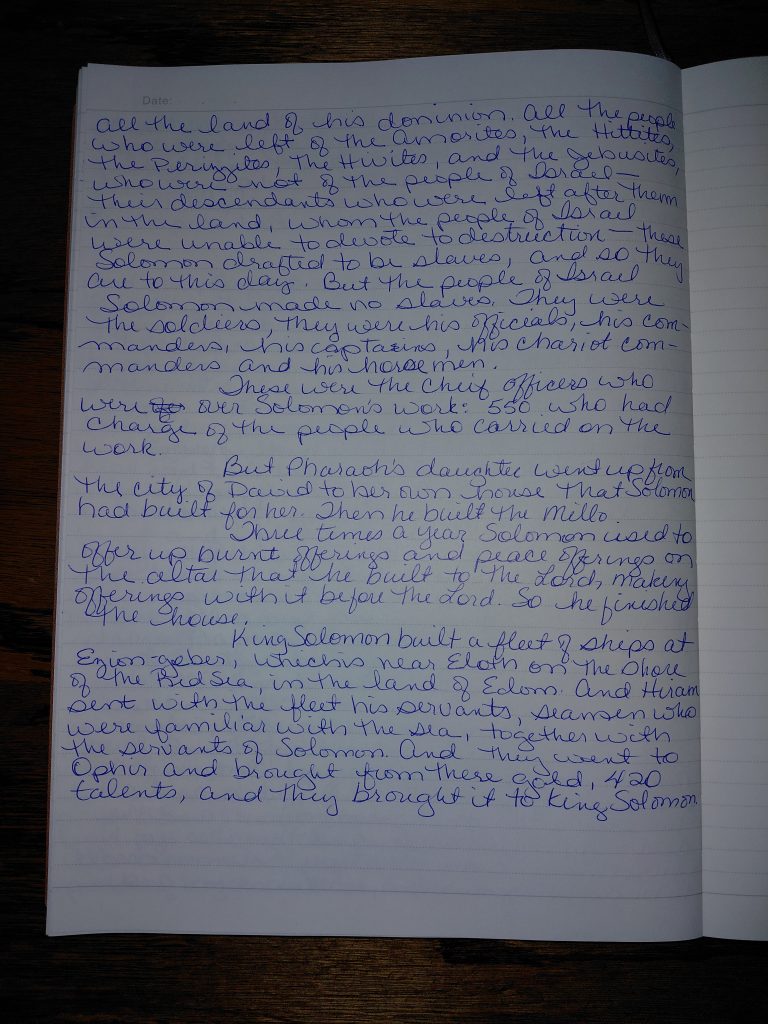 Date:
all the land of his dominion. All the people
who were left of the Amorites, the Hittites,
the Perizzites, the Hivites, and the Jebusites,
who were not of the people of Israel—
their descendants who were left after them
in the land, whom the people of Israel
were unable to devote to destruction — these
Solomon drafted to be slaves, and so they
are to this day. But the people of Israel
Solomon made no slaves. They were
the soldiers, they were his officials, his com-
manders, his captains, his chariot com-
manders and his horsemen.
These were the cheif officers who
were over Solomon's work: 550 who had
charge of the people who carried on the
work.
But Pharaoh's daughter went up from
the city of David to her own house that Solomon
had built for her. Then he built the Millo.
Three times a year Solomon used to
offer up burnt offerings and peace offerings on
the altar that he built to the Lord, making
offerings with it before the Lord. So he finished
the house.
King Solomon built a fleet of ships at
Ezion-geber, which is near Eloth on the shore
of the Red Sea, in the land of Edom. And Hiram
sent with the fleet his servants, seamen who
were familiar with the sea, together with
the servants of Solomon. And they went to
Ophir and brought from there gold, 420
talents, and they brought it to King Solomon.